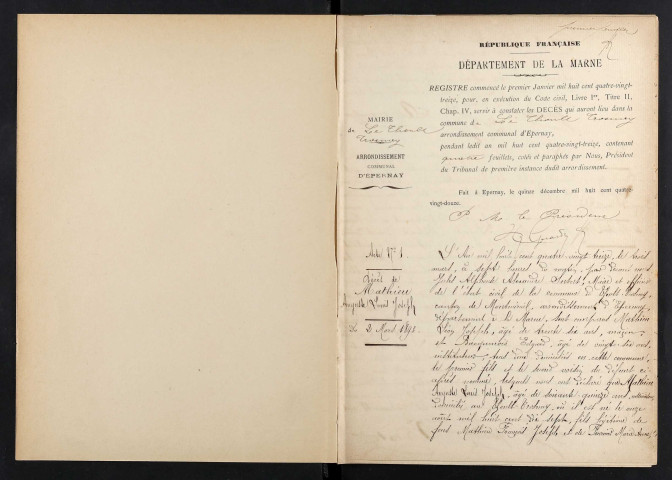 RÉPUBLIQUE FRANÇAISE
DÉPARTEMENT DE LA MARNE
REGISTRE commencé le premier Janvier mil huit cent quatre-vingt-
treize, pour, en exécution du Code civil, Livre Ier, Titre II,
Chap. IV, servir à constater les DÉCÈS qui auront lieu dans la
commune de Le Thoult Trosnay
arrondissement communal d'Epernay,
pendant ledit an mil huit cent quatre-vingt-treize, contenant
quatre feuillets, cotés et paraphés par Nous, Président
du Tribunal de première instance dudit arrondissement.
Fait à Epernay, le quinze décembre mil huit cent quatre-
vingt-douze.
P. Mr le Président
MAIRIE
de Le Thoult
Trosnay
ARRONDISSEMENT
COMMUNAL
D'EPERNAY
Acte No 1
Décès de
Mathieu
Auguste Louis Joseph
Du 2 Mars 1893
L'An mil huit cent quatre vingt treize, le trois
mars, à sept heures du matin, par devant nous
Alphonse Alexandre Maire et officier
de l'état civil de la commune de Thoult Trosnay,
canton de Montmirail, arrondissement d'Epernay,
département de la Marne, sont comparus Mathieu
Léon Joseph, âgé de trente six ans, maçon
et Edgard, âgé de vingt six ans,
instituteur, tous deux domiciliés en cette commune,
le premier fils et le second voisin du défunt ci-
après nommé, lesquels nous ont déclaré que Mathieu
Auguste Louis Joseph, âgé de soixante quinze ans,
domicilié au Thoult Trosnay, où il est né le onze
août mil huit cent dix sept, fils légitime de
feus Mathieu François Joseph et de Marie Anne